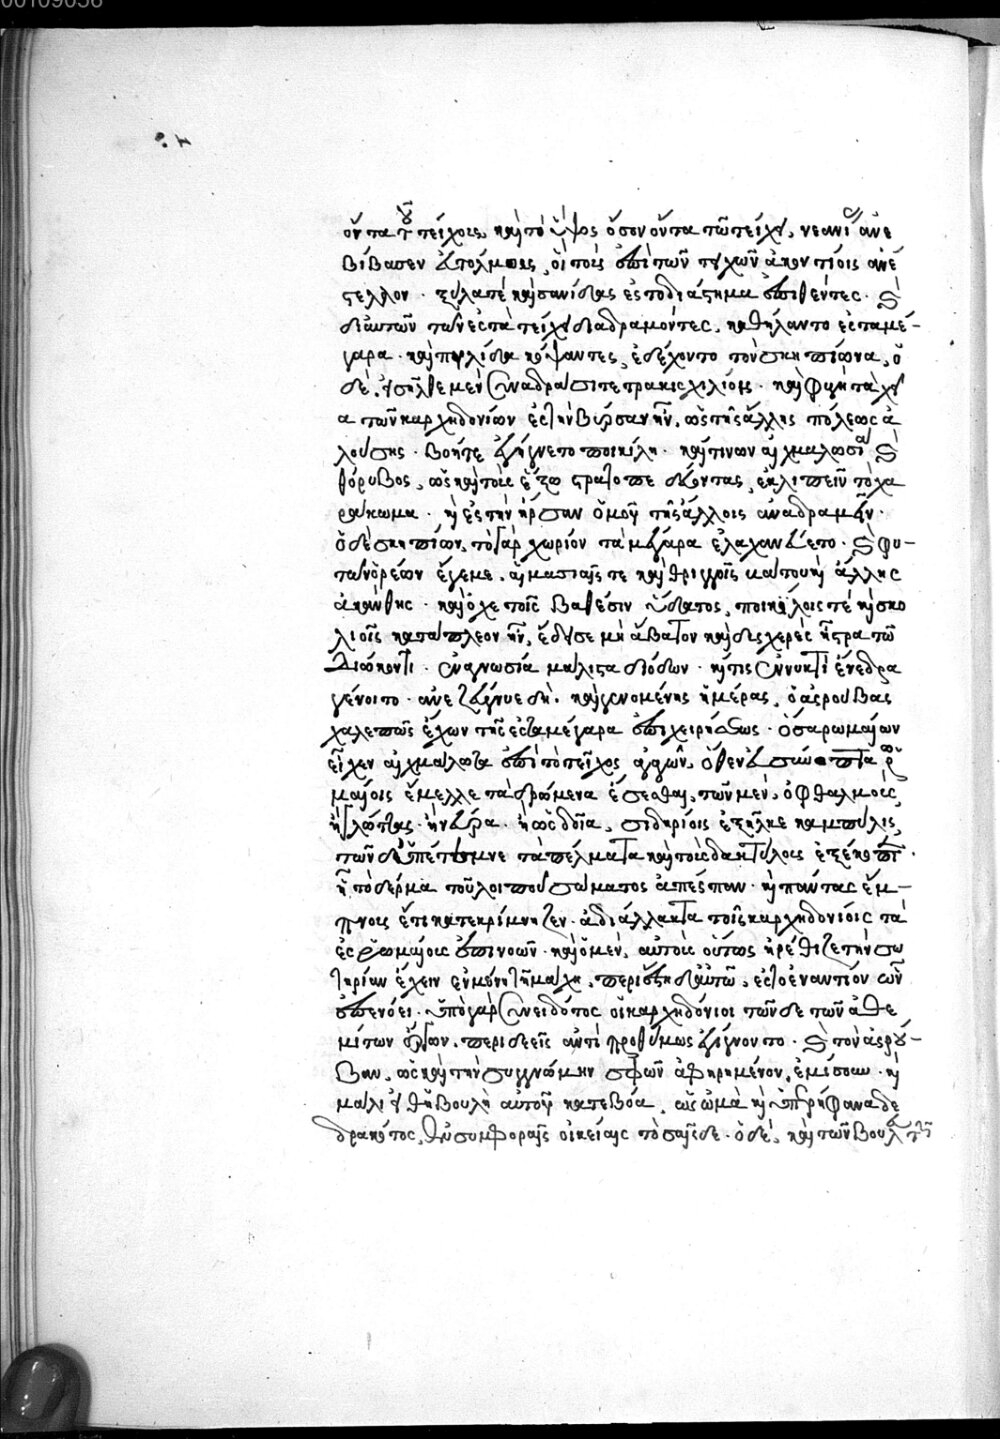 ὄντα τοῦ τείχους, καὶ τὸ ὕψος ὅσον ὄντα τῶ τείχει, νεανίας ἀνε
βίβασεν εὐτόλμους, οἳ τοὺς ἐπὶ τῶν τειχῶν ἀκοντίοις ἀνέ
στελλον. ξύλα τὲ καὶ σανίδας ἐς τὸ διάστημα ἐπιθέντες. καὶ
δι αὐτῶν τῶν ἐς τὰ τείχη διαδραμόντες, καθήλαντο ἐς τὰ μέ-
γαρα. καὶ πυλίδα κόψαντες, ἐδέχοντο τὸν σκηπίωνα, ὁ
δὲ, ἐσῆλθε μὲν ἀνδράσι τετρακισχιλίοις. καὶ φυγὴ ταχεῖ
α τῶν καρχηδονίων ἐς τὴν βύρσαν ἦν, ὡς τῆς ἄλλης πόλεως ἁ
λούσης. βοήτε ἐγίγνετο ποικίλη. καὶ τινων αἰχμαλωσία καὶ
θόρυβος, ὡς καὶ τοὺς ἔξω στρατοπεδεύοντας, ἐκλιπεῖν τὸ χα
ράκωμα. καὶ ἐς τὴν βύρσαν ὁμοῦ τοῖς ἄλλοις ἀναδραμεῖν.
ὁ δὲ σκηπίων, τὸ γὰρ χωρίον τὰ μέγαρα ἐλαχανεύετο. καὶ φυ-
τῶν ὡρέων ἔγεμε, αἱμασιαῖς τε καὶ θριγγοῖς βάτου καὶ ἄλλης
ἀκάνθης. καὶ ὀχετοῖς βαθέσιν ὕδατος, ποικίλοις τὲ καὶ σκο
λιοῖς κατάπλεον ἦν, ἔδεισε μὴ ἄβατον καὶ δυσχερὲς ᾖ στρατῶ
διώκοντι. ἐν ἀγνωσία μάλιστα διόδων. καί τις ἐν νυκτὶ ἐνέδρα
γένοιτο. ἀνεζεύγνυε δή. καὶ γενομένης ἡμέρας, ὁ ἀσρούβας
χαλεπῶς ἔχων τῆς ἐς τὰ μέγαρα ἐπιχειρήσεως. ὅσα ῥωμαίων
εἶχεν αἰχμάλωτα ἐπὶ τὸ τεῖχος ἀγαγὼν, ὅθεν εὐσύνοπτα ῥω
μαίοις ἔμελλε τὰ δρώμενα ἔσεσθαι, τῶν μὲν, ὀφθαλμοὺς
ἢ γλώττας. ἢ νεῦρα. ἢ αἰδοῖα, σιδηρίοις ἐξεῖλκε καμπύλοις,
τῶν δ ὑπέτεμνε τὰ πέλματα καὶ τοὺς δακτύλους ἐξέκοπτε.
ἢ τὸ δέρμα τοῦ λοιποῦ σώματος ἀπέσπα. καὶ πάντας ἔμ-
πνους ἔτι κατεκρίμνιζεν. ἀδιάλλακτα τοῖς καρχηδονίοις τὰ
ἐς ῥωμαίους ἐπινοῶν. καὶ ὁ μὲν, αὐτοὺς οὕτως ἠρέθιζε τὴν σω
τηρίαν ἔχειν ἐν μόνη τῆ μάχη, περιέστη δ αὐτῶ, ἐς τοἐναντίον ὧν
ἐπενόει. ὑπὸ γὰρ συνειδότος οἱ καρχηδόνιοι τῶνδε τῶν ἀθε
μίτων ἔργων, περιδεεῖς ἀντὶ προθύμως ἐγίγνοντο. καὶ τὸν ἀσρού-
βαν, ὡς καὶ τὴν συγγνώμην σφῶν ἀφηρημένον, ἐμίσουν. καὶ
μάλισθ ἡ βουλὴ αὐτοῦ κατεβόα, ὡς ὠμὰ καὶ ὑπερήφανα δε
δρακότος, ἐν συμφοραῖς οἰκείαις τοσαῖσδε. ὁ δὲ, καὶ τῶν βουλευτῶν